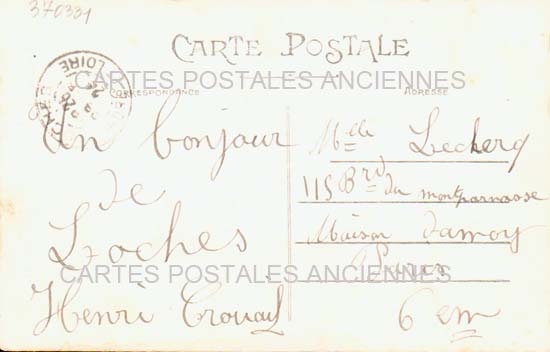 370331
CARTE POSTALE
CARTES POSTALES ANCIENNES
CORRESPONDANCE
ADRESSE
LOIRE
un bonjour
de
Loches
Henri
Mlle Leclerq
115 Brd du montparnasse
Maison damoy
Paris
6 em
CARTES POSTALES ANCIENNES